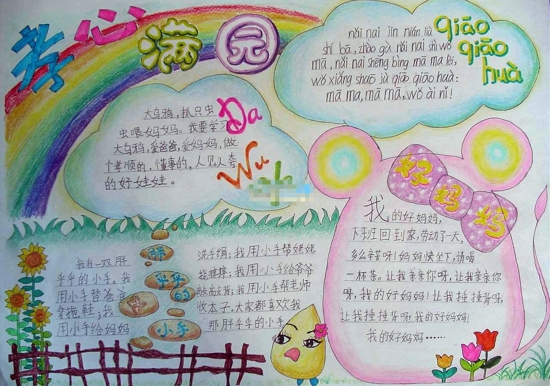 孝心满园
大乌鸦，抓只虫
虫喂妈妈。我要学习
大乌鸦，爱爸爸，爱妈妈，做
个孝顺的，懂事的，人见人夸
的好娃娃。
Da
Wu
nǎi nai jīn nián liù
shí bā,
nǎi nai shēng bìng mā ma lèi,
wǒ xiǎng shuō jù qiāo qiāo huà:
mā ma, mā mā, wǒ ài nǐ!
qiāo
qiāo
huà
好妈妈
我的好妈妈，
下班回到家，劳动了一天，
多么辛苦呀！妈妈快坐下，请喝
一杯茶，让我亲亲你呀，让我亲亲你
呀，我的好妈妈！让我捶捶背呀，
让我捶捶背呀，我的好妈妈！
我的好妈妈……
我有一双胖
乎乎的小手，我
用小手替爸爸
拿拖鞋，我
用小手给妈妈
胖
乎乎
的
小手
洗手绢；我用小手帮姥姥
挠痒痒；我用小手给爷爷
我用小手帮老师
收本子，大家都喜欢我
那胖乎乎的小手！